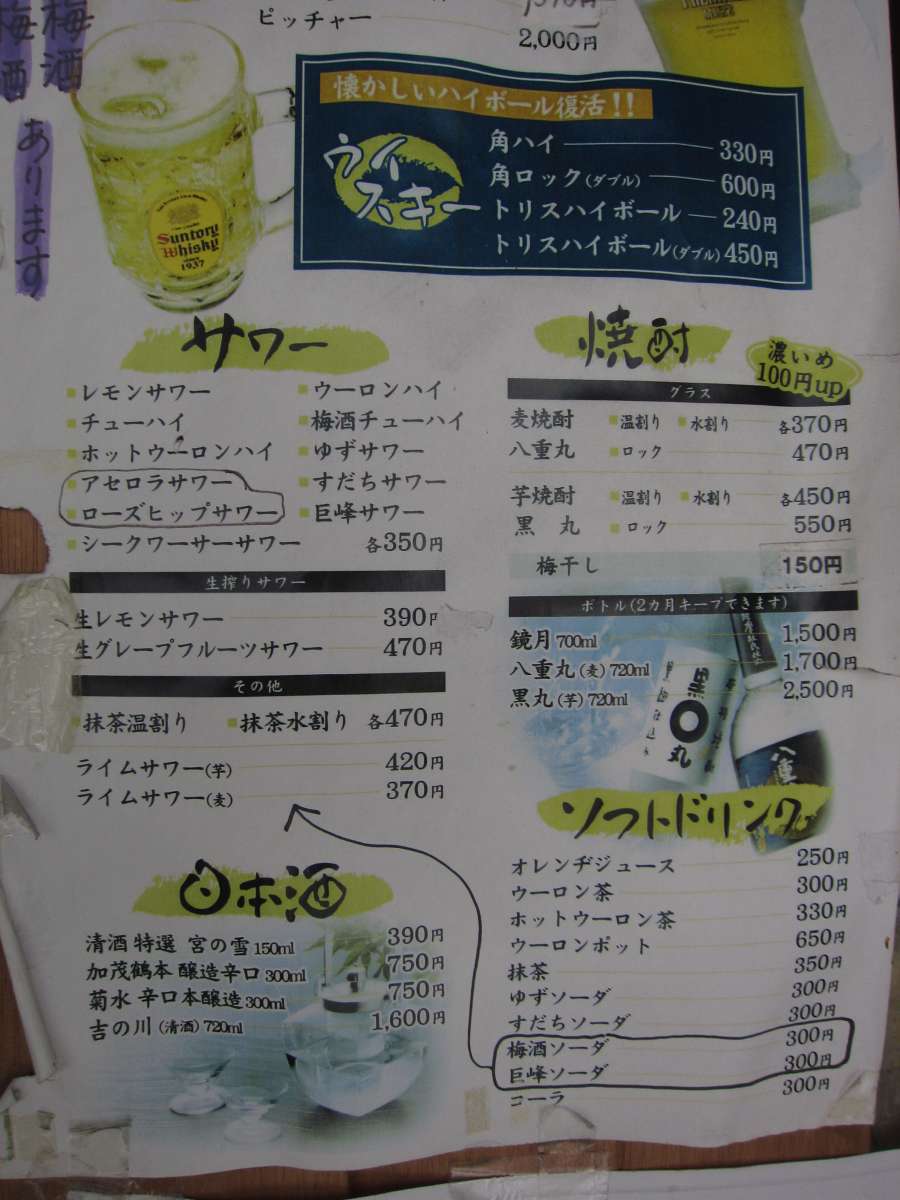 梅酒
梅酒
あります
ピッチャー
2,000円
Suntory
Whisky
since
1937
懐かしいハイボール復活!!
ウイスキー
角ハイ 330円
角ロック(ダブル) 600円
トリスハイボール 240円
トリスハイボール(ダブル) 450円
サワー
レモンサワー ウーロンハイ
チューハイ 梅酒チューハイ
ホットウーロンハイ ゆずサワー
アセロラサワー すだちサワー
ローズヒップサワー 巨峰サワー
シークワーサーサワー 各350円
生搾りサワー
生レモンサワー 390円
生グレープフルーツサワー 470円
その他
抹茶温割り 抹茶水割り 各470円
ライムサワー(芋) 420円
ライムサワー(麦) 370円
日本酒
清酒 特選 宮の雪 150ml 390円
加茂鶴本 醸造辛口 300ml 750円
菊水 辛口本醸造 300ml 750円
吉の川 (清酒) 720ml 1,600円
焼酎
濃いめ
100円up
グラス
麦焼酎 温割り 水割り 各370円
八重丸 ロック 470円
芋焼酎 温割り 水割り 各450円
黒丸 ロック 550円
梅干し 150円
ボトル(2カ月キープできます)
鏡月 700ml 1,500円
八重丸(麦) 720ml 1,700円
黒丸(芋) 720ml 2,500円
黒丸
八重
ソフトドリンク
オレンヂジュース 250円
ウーロン茶 300円
ホットウーロン茶 330円
ウーロンポット 650円
抹茶 350円
ゆずソーダ 300円
すだちソーダ 300円
梅酒ソーダ 300円
巨峰ソーダ 300円
コーラ 300円